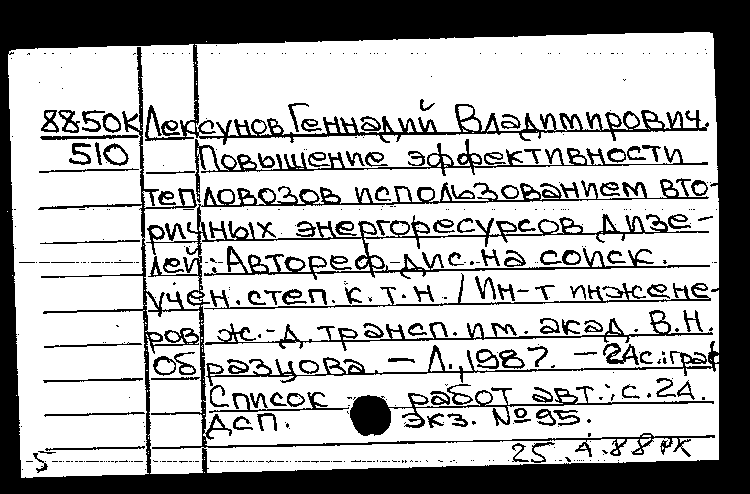 88-50К Лексунов, Геннадий Владимирович.
510 Повышение эффективности
тепловозов использованием вто-
ричных энергоресурсов дизе-
лей: Автореф. дис. на соиск.
учен. степ. к. т. н. / Ин-т инжене-
ров ж.-д. трансп. им. акад. В. Н.
Образцова. — Л., 1987. — 24 с.: граф
Список работ авт.: с. 24.
ДСП. экз. № 95.
25.4.88 РК
5